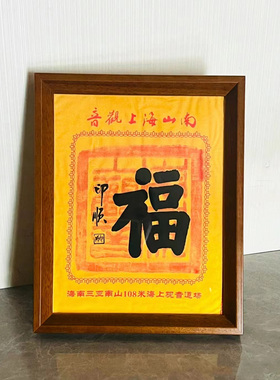 音觀上海山南
福
印順
海南三亚南山108米海上观音道场